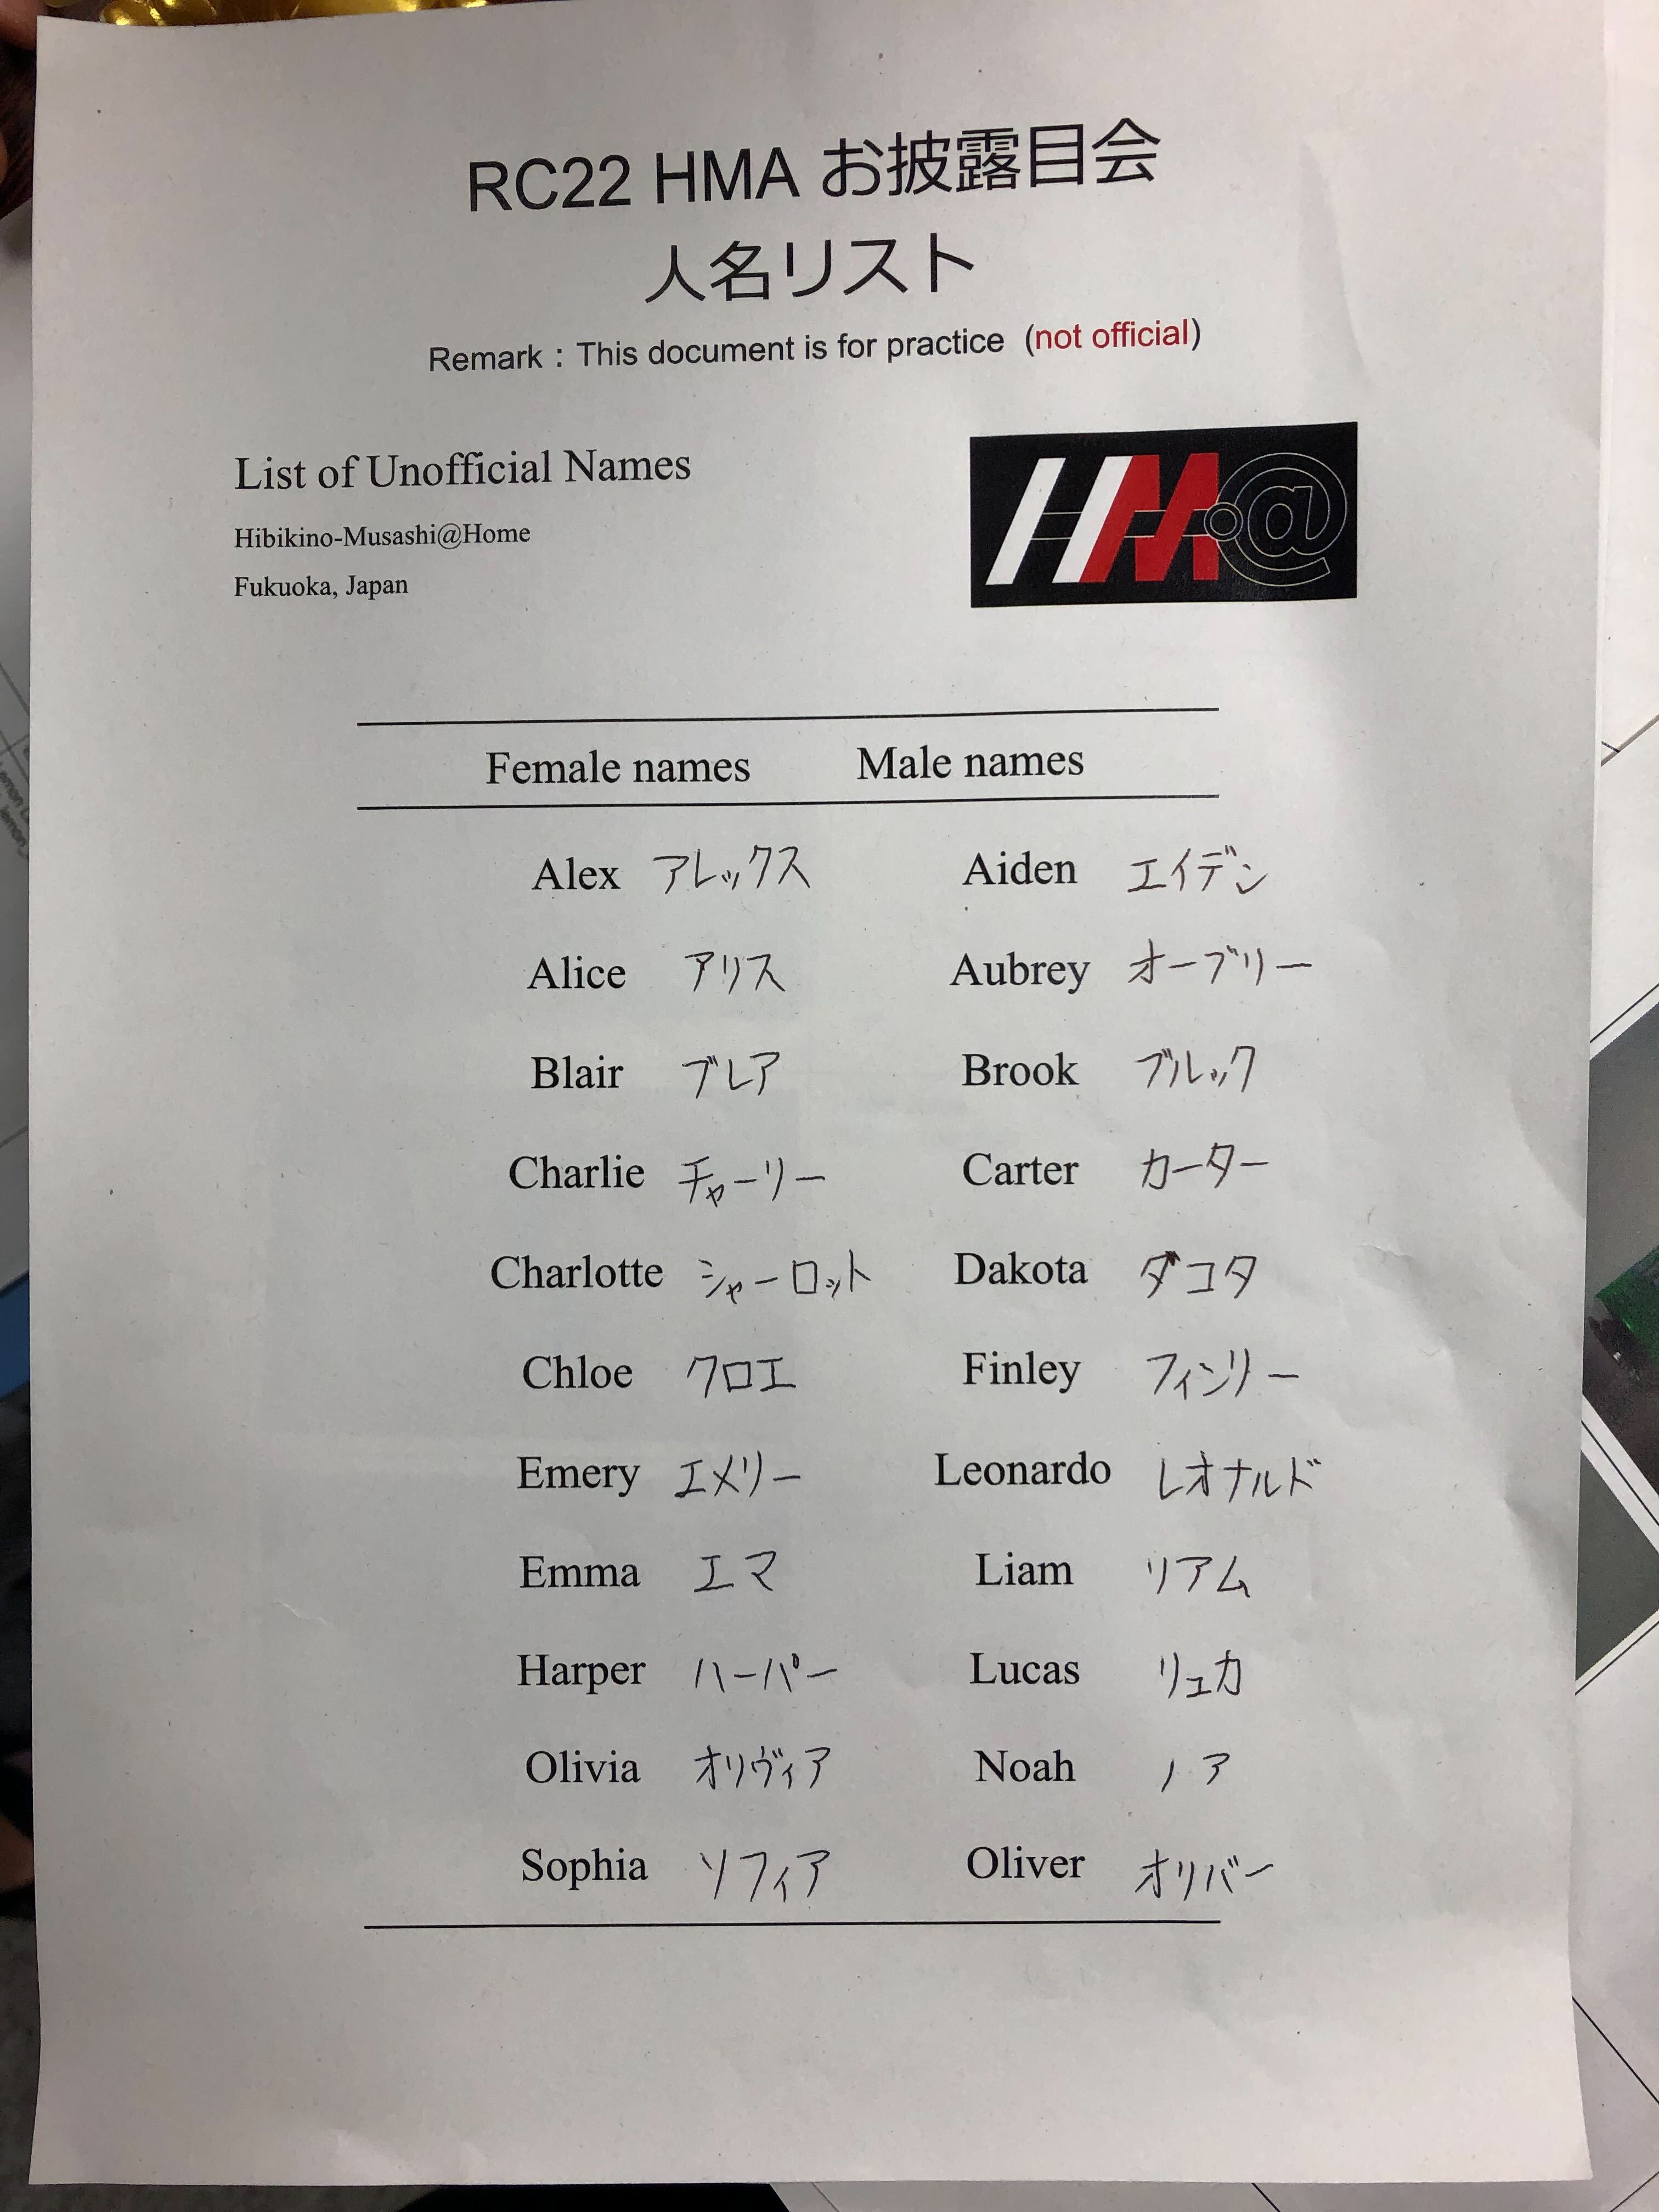 RC22 HMA お披露目会
人名リスト
Remark : This document is for practice (not official)
List of Unofficial Names
Hibikino-Musashi@Home
Fukuoka, Japan
HM@
Female names Male names
Alex アレックス Aiden エイデン
Alice アリス Aubrey オーブリー
Blair ブレア Brook ブルック
Charlie チャーリー Carter カーター
Charlotte シャーロット Dakota ダコタ
Chloe クロエ Finley フィンリー
Emery エメリー Leonardo レオナルド
Emma エマ Liam リアム
Harper ハーパー Lucas リュカ
Olivia オリヴィア Noah ノア
Sophia ソフィア Oliver オリバー